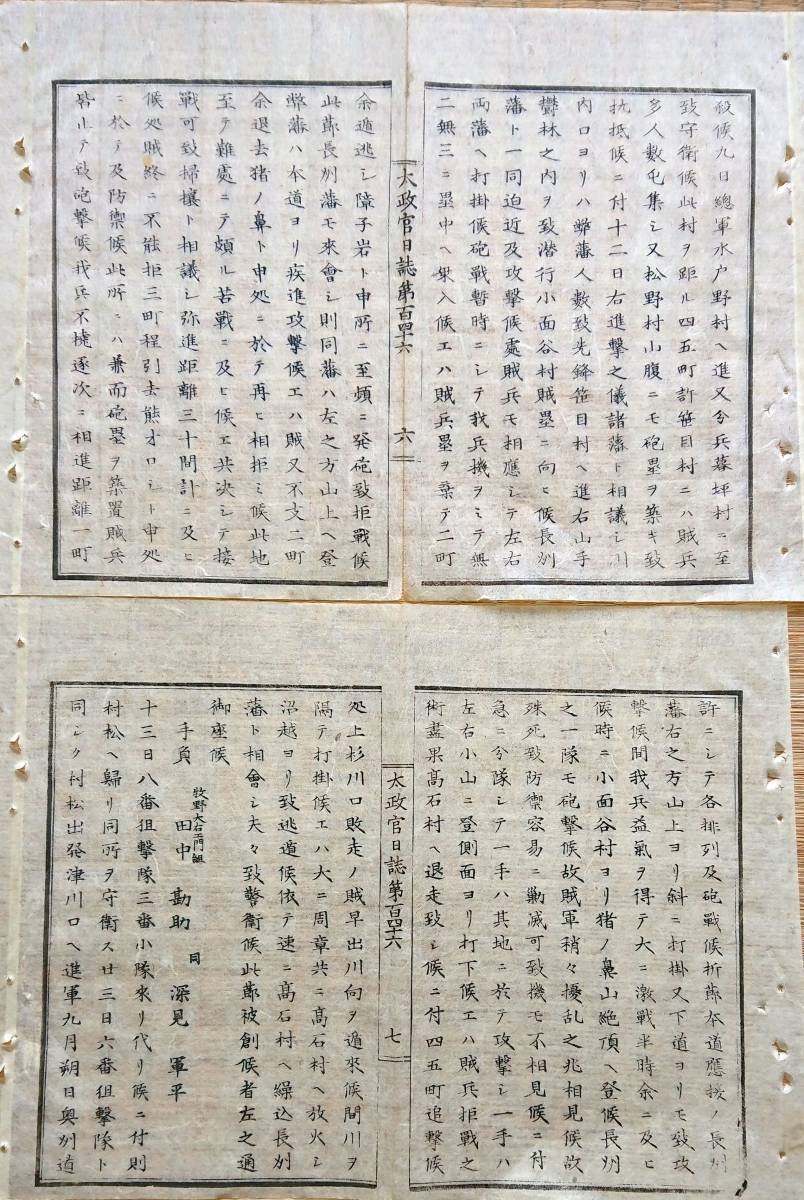 殺候九日總軍水户野村ヘ進又分兵暮坪村ニ至
致守衛候此村ヲ距ル四五町許笹目村ニハ賊兵
多人數屯集シ又松野村山腹ニモ砲壘ヲ築キ致
抗抵候ニ付十二日右進撃之儀諸藩ト相議シ川
内口ヨリハ弊藩人數致先鋒笹目村ヘ進右山手
欝林之内ヲ致潜行小面谷村賊壘ニ向ヒ候長刕
藩ト一同迫近及攻撃候處賊兵モ相應シテ左右
両藩ヘ打掛候砲戰暫時ニシテ我兵機ヲミテ無
二無三ニ壘中ヘ乗入候エハ賊兵壘ヲ棄テ二町
太政官日誌第百四十六
六
余遁逃シ障子岩ト申所ニ至頻ニ発砲致拒戰候
此節長刕藩モ來會シ則同藩ハ左之方山上ヘ登
弊藩ハ本道ヨリ疾進攻撃候エハ賊又不支二町
余退去猪ノ鼻ト申処ニ於テ再ヒ相拒ミ候此地
至テ難處ニテ頗ル苦戰ニ及ヒ候エ共決シテ接
戰可致掃攘ト相議シ弥進距離三十間計ニ及ヒ
候処賊終ニ不能拒三町程引去熊オロシト申処
ニ於テ及防禦候此所ニハ兼而砲壘ヲ築置賊兵
踏止テ致砲撃候我兵不撓逐次ニ相進距離一町
許ニシテ各排列及砲戰候折節本道應援ノ長刕
藩右之方山上ヨリ斜ニ打掛又下道ヨリモ致攻
撃候間我兵益氣ヲ得テ大ニ激戰半時余ニ及ヒ
候時ニ小面谷村ヨリ猪ノ鼻山絶頂ヘ登候長刕
之一隊モ砲撃候故賊軍稍々擾乱之兆相見候故
殊死致防禦容易ニ勦滅可致機モ不相見候ニ付
急ニ分隊シテ一手ハ其地ニ於テ攻撃シ一手ハ
左右小山ニ登側面ヨリ打下候エハ賊兵拒戰之
術盡果髙石村ヘ退走致シ候ニ付四五町追撃候
太政官日誌第百四十六
七
処上杉川口敗走ノ賊早出川向ヲ遁來候間川ヲ
隔テ打掛候エハ大ニ周章共ニ髙石村ヘ放火シ
沼越ヨリ致逃遁候依テ速ニ髙石村ヘ繰込長刕
藩ト相會シ夫々致警衛候此節被創候者左之通
御座候
手負 牧野大右エ門組 田中 勘助 同 深見 軍平
十三日八番狙撃隊三番小隊來リ代リ候ニ付則
村松ヘ歸リ同所ヲ守衛ス廿三日六番狙撃隊ト
同シク村松出発津川口ヘ進軍九月朔日奥刕道